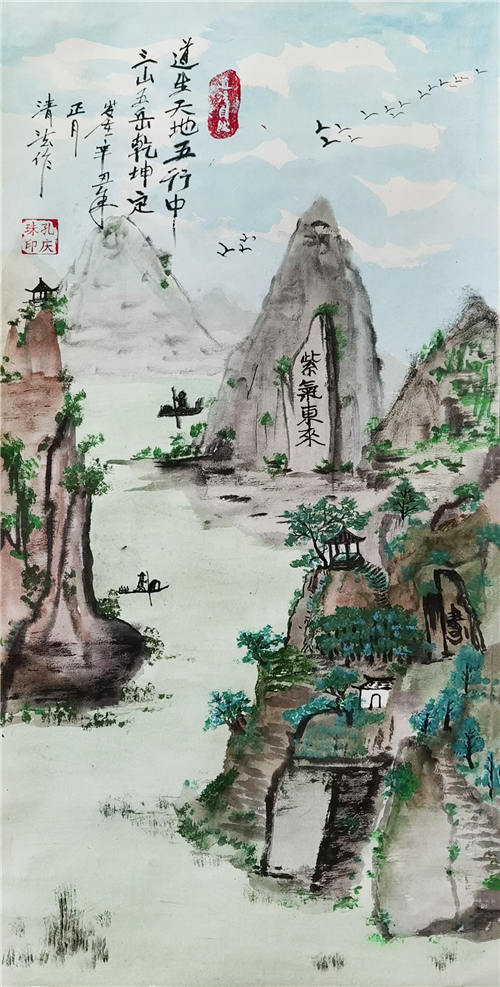 道生天地五行中
三山五岳乾坤定
辛丑年
正月
清法作
孔庆
珠印
紫氣東来